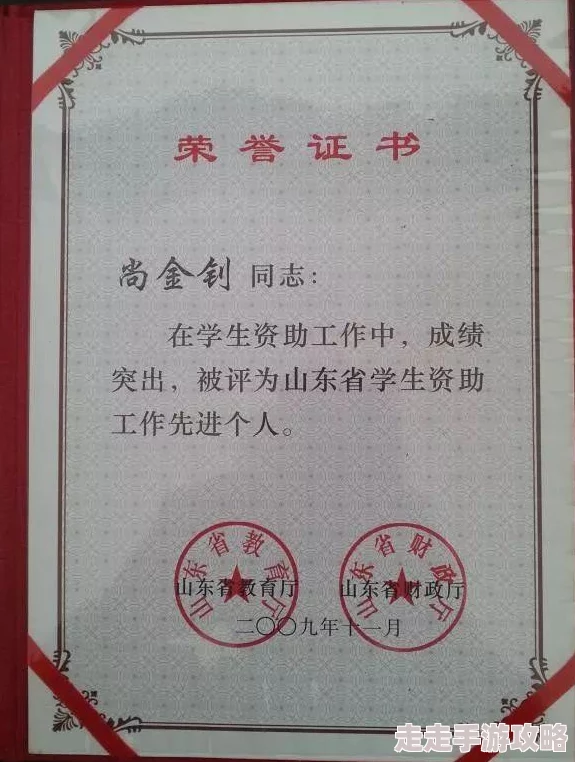 荣誉证书
尚金钊 同志：
在学生资助工作中，成绩
突出，被评为山东省学生资助
工作先进个人。
山东省教育厅 山东省财政厅
山东省教育厅 山东省财政厅
二〇〇九年十一月
走走手游攻略